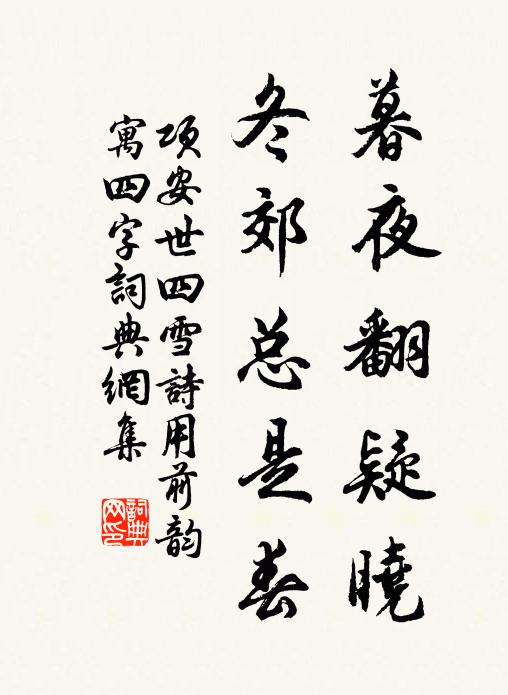 暮夜翻疑曉
冬郊总是春
项安世四雪詩用前韵
寓四字詞典網集
詞典网印